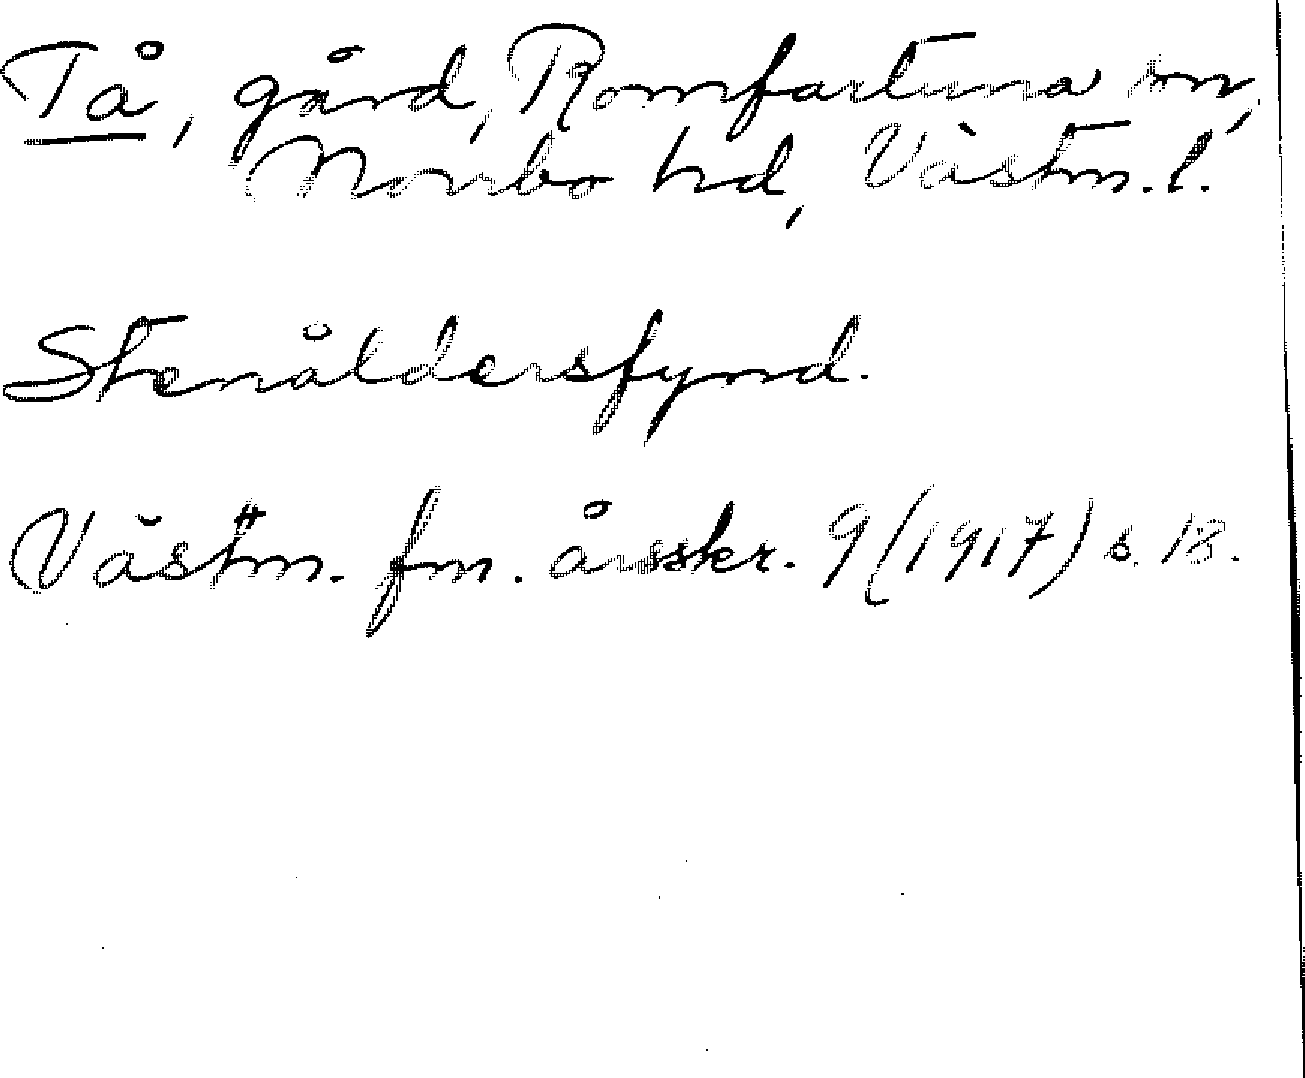 Tå, gård, Romfartuna sn,
Norrbo hd, Västm. l.
Stenåldersfynd.
Västm. fm. årsskr. 9 (1917) s. 13.